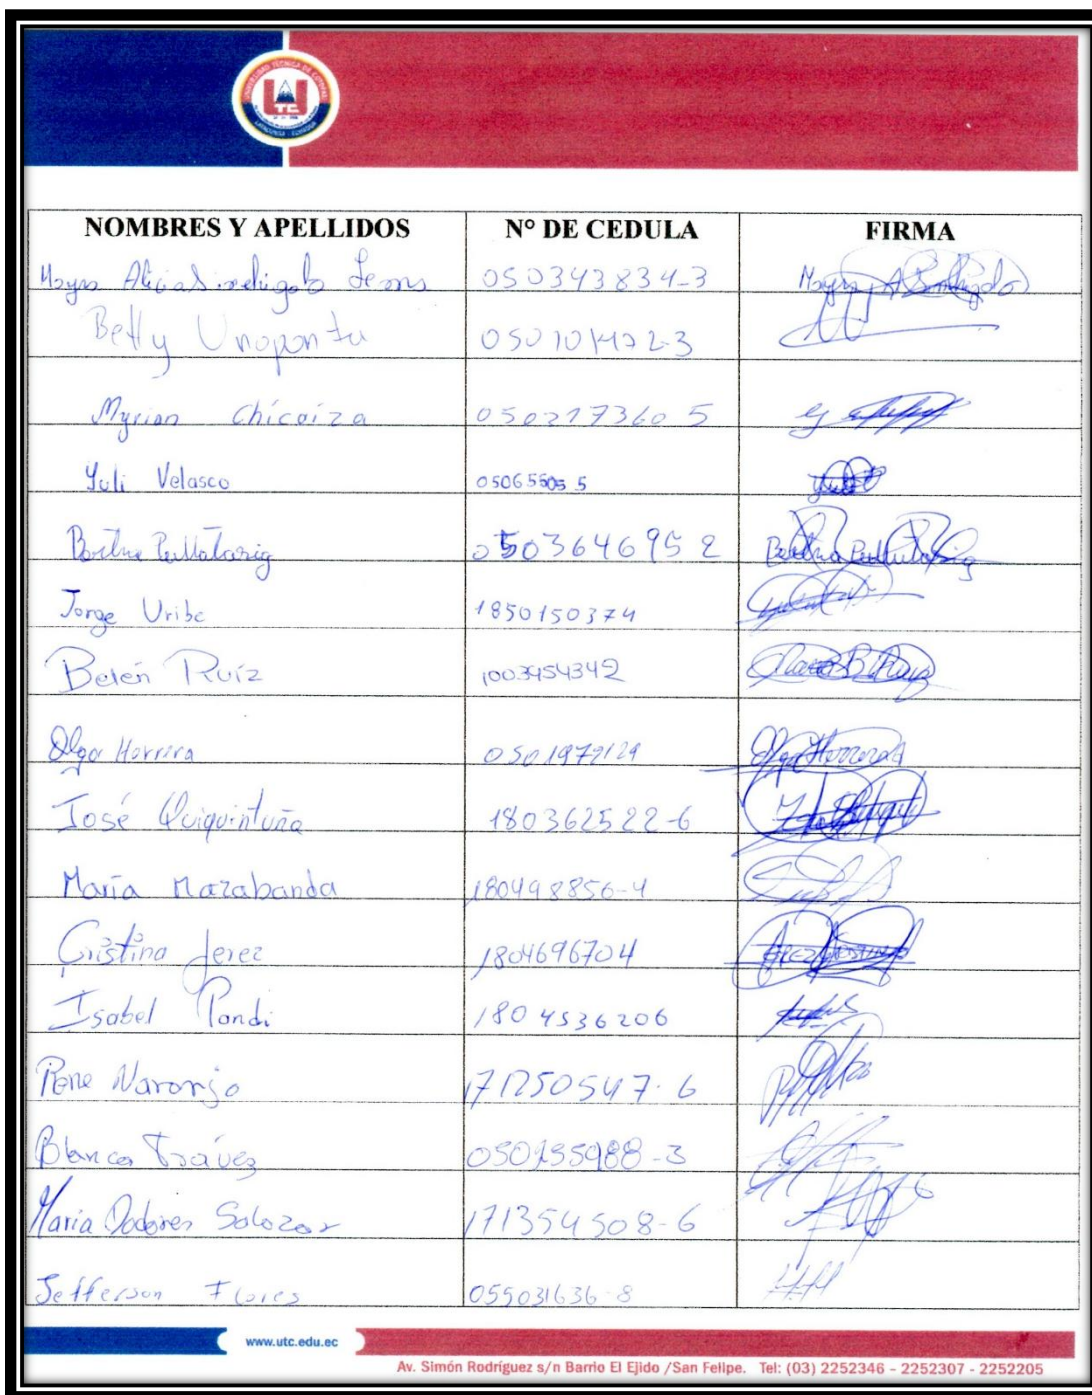 UNIVERSIDAD TECNICA DE COTOPAXI
UTC
LATACUNGA - ECUADOR
NOMBRES Y APELLIDOS N° DE CEDULA FIRMA
Mayra Alicia 050343834-3 Mayra A
Betty
Myrian Chicaiza 050217360 5
Yuli Velasco
Pullatasig 050364695 2 Pullatasig
Jorge Uribe 1850150374
Belén Ruíz 1003454342
Olga Herrera 0501972129 Olga Herrera
José Quiquintuña 180362522-6
María Mazabanda 180498856-4
Cristina Jerez 1804696704
Isabel Pandi 1804536206
Rene Naranjo 171250547-6
Blanca Travez 050255988-3
Maria Dolores Salazar 171354508-6
Jefferson Flores 055031636-8
www.utc.edu.ec
Av. Simón Rodríguez s/n Barrio El Ejido /San Felipe. Tel: (03) 2252346 - 2252307 - 2252205